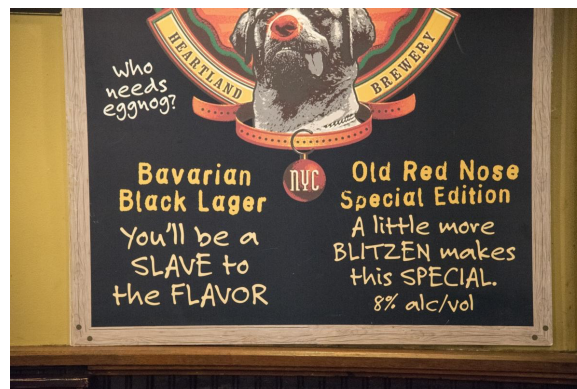 HEARTLAND BREWERY
Who
needs
eggnog?
NYC
Bavarian
Black Lager
You'll be a
SLAVE to
the FLAVOR
Old Red Nose
Special Edition
A little more
BLITZEN makes
this SPECIAL.
8% alc/vol